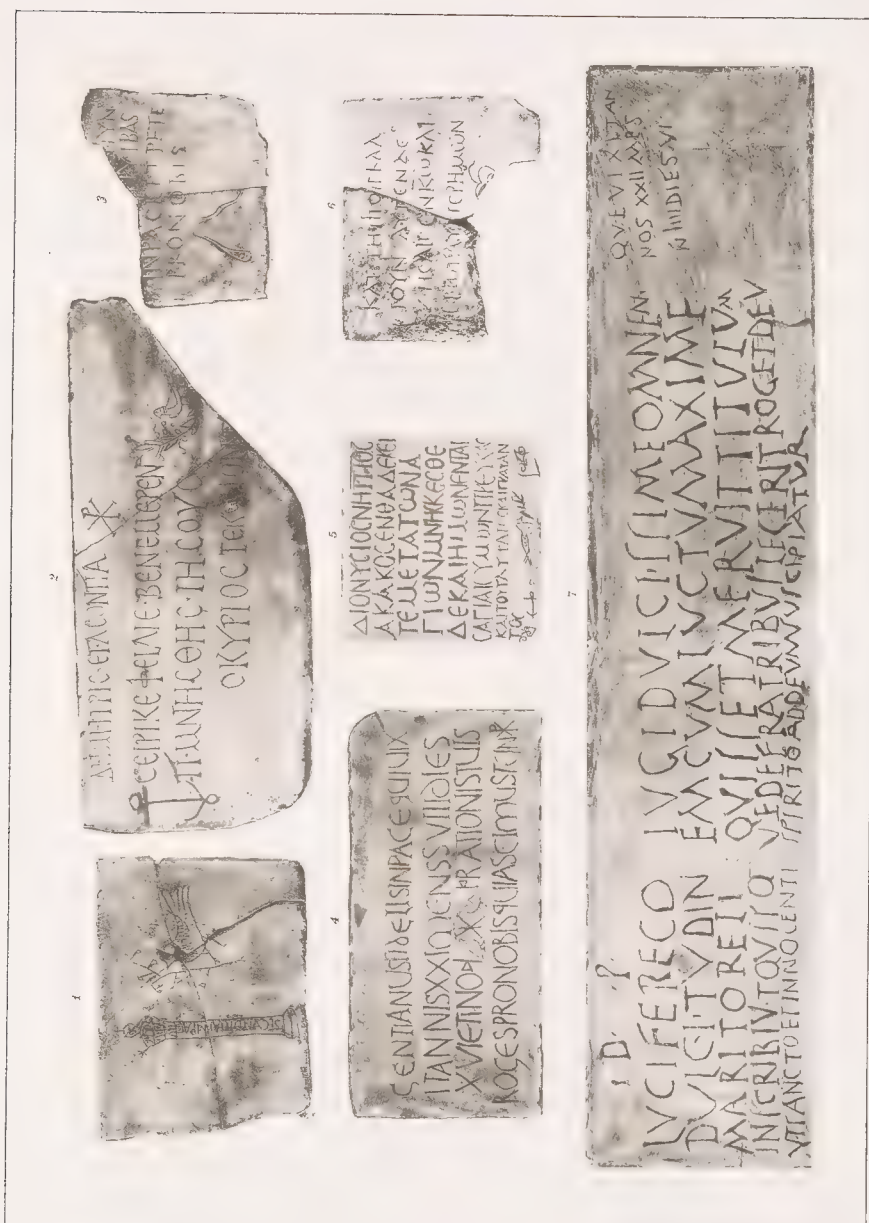 1
2
ΔΗΜΗΤΡΙC·ΕΤ·ΛΕΟΝΤΙΑ ☧
CEIPIKE ΦΕΙΛΙΕ·BENEMEPEN
ΤΙ·ΜΝΗCΘΗC·ΙΗCΟΥC
Ο ΚΥΡΙΟC ΤΕΚΝΟΝ
3
IBAS
IN PACE ET PETE
PRO NOBIS
4
GENTIANUSFIDELISINPACEQUIUIX
ITANNISXXIMENSSVIIIDIES
XVIETINORATIONISTUIS
ROGESPRONOBISQUIASCIMUSTEIN☧
5
ΔΙΟΝΥCΙΟCΝΗΠΙΟC
ΑΚΑΚΟCΕΝΘΑΔΕΚΕΙ
ΤΕΜΕΤΑΤΩΝΑ
ΓΙΩΝΜΝΗCΚΕCΘΕ
ΔΕΚΑΙΗΜΩΝΕΝΤΑΙ
CΑΓΙΑΙCΥΜΩΝΠΡΕΥΧΑC
ΚΑΙΤΟΥΓΛΥΨΑΤΟCΚΑΙΓΡΑΨΑΝ
ΤΟC
6
7
D P
LVCIFERE CO IVGI DVLCISSIME OMNEN
DVLCITVDIN EM CVM LVCTV MAXIME
MARITO RELI QVISSET MERVIT TITVLVM
INSCRIBI VT QVISQ VE DE FRATRIBVS LEGERIT ROGET DEV
VT SANCTO ET INNOCENTI SPIRITO AD DEVM SVSCIPIATVR
QVE VIXIT AN
NOS XXII MES
DIES VI